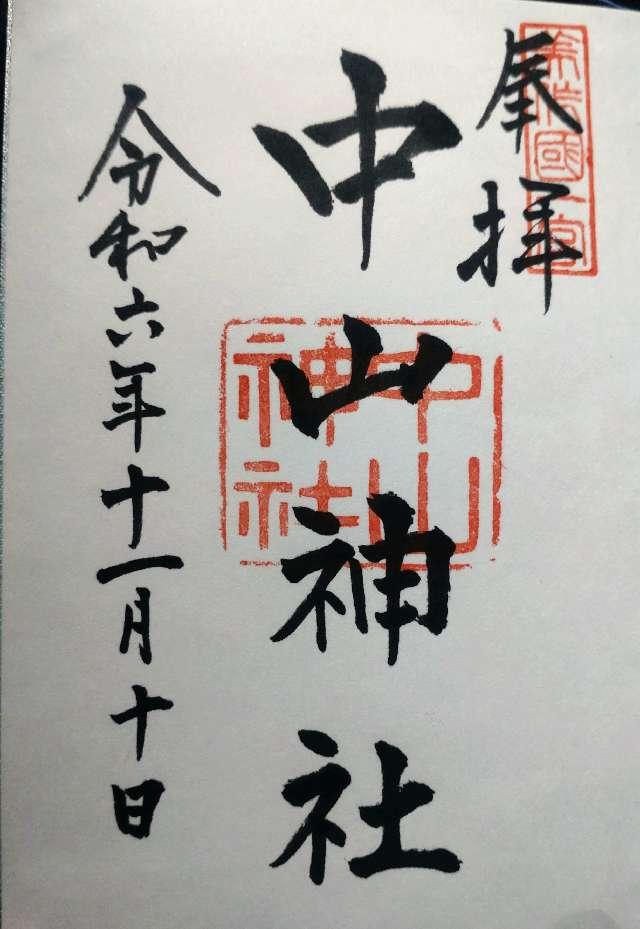 奉拝
美作國一宮
中山神社
中山
神社
令和六年十一月十日